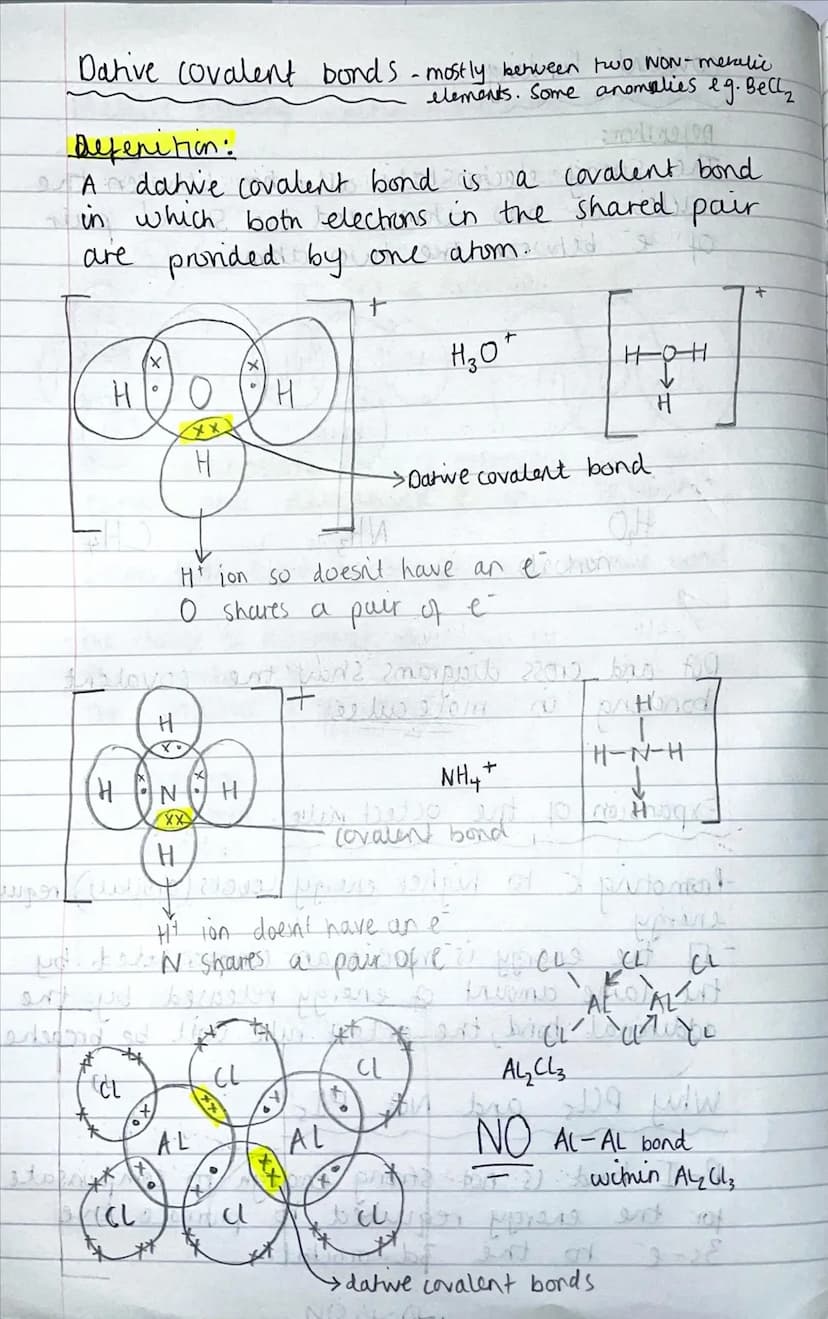 Dative covalent bonds - mostly between two NON-metallic
elements. Some anomalies eg. BeCl2
Defenition:
A dative covalent bond is a covalent bond
in which both electrons in the shared pair
are provided by one atom.
+
H O H
x x
• •
xx
H
H3O+
+
H-O-H
↓
H
→Dative covalent bond
↓
H+ ion so doesn't have an e-
O shares a pair of e-
+
H
x •
H N H
x x
• •
xx
H
NH4+
H
|
H-N-H
↓
H
covalent bond
↓
H+ ion doent have an e-
N shares a pair of e-
CL CL CL
AL AL
CL CL CL
AL2CL3
CL CL CL
AL AL
CL Cl CL
NO Al-Al bond
within AL2CL3
→dative covalent bonds